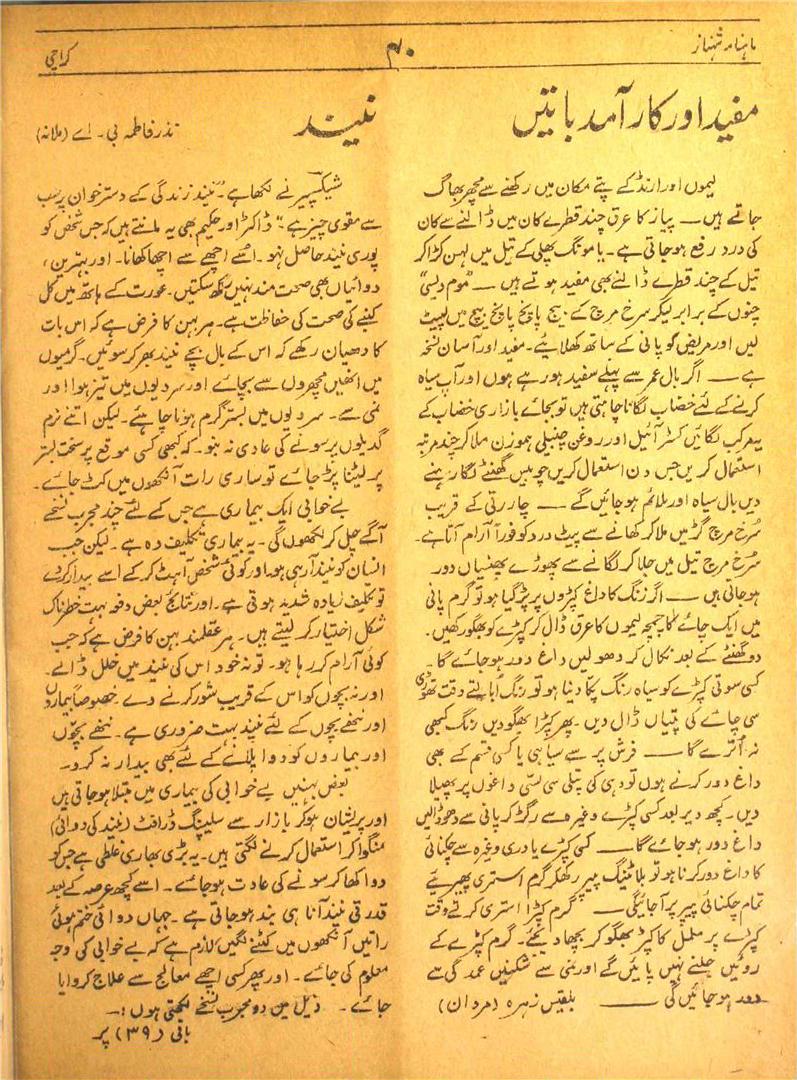 ماہنامہ شہناز
۴۰
کراچی
مفید اور کار آمد باتیں
لیموں اور ارنڈ کے پتے مکان میں رکھنے سے مچھر بھاگ
جاتے ہیں — پیاز کا عرق چند قطرے کان میں ڈالنے سے کان
کی درد رفع ہو جاتی ہے۔ یا مونگ پھلی کے تیل میں لہسن کڑا کر
تیل کے چند قطرے ڈالنے بھی مفید ہوتے ہیں — "موم دیسی"
چنوں کے برابر لیکر سرخ مرچ کے بیج پانچ پانچ بیچ میں لپیٹ
لیں اور مریض کو پانی کے ساتھ کھلائیے۔ مفید اور آسان نسخہ
ہے — اگر بال عمر سے پہلے سفید ہو رہے ہوں اور آپ سیاہ
کرنے کے لئے خضاب لگانا چاہتی ہیں تو بجائے بازاری خضاب کے
یہ مرکب لگائیں کسٹر آئیل اور روغن چنبلی ہموزن ملا کر چند مرتبہ
استعمال کریں جس دن استعمال کریں چوبیس گھنٹے لگا رہنے
دیں بال سیاہ اور ملائم ہو جائیں گے — چار رتی کے قریب
سرخ مرچ گڑ میں ملا کر کھانے سے پیٹ درد کو فوراً آرام آتا ہے۔
سرخ مرچ تیل میں جلا کر لگانے سے پھوڑے پھنسیاں دور
ہو جاتی ہیں — اگر زنگ کا داغ کپڑوں پر پڑ گیا ہو تو گرم پانی
میں ایک چائے کا چمچہ لیموں کا عرق ڈال کر کپڑے کو بھگو رکھیں۔
دو گھنٹے کے بعد نکال کر دھو لیں داغ دور ہو جائے گا۔
کسی سوتی کپڑے کو سیاہ رنگ پکا دینا ہو تو رنگ اُبالتے وقت تھوڑی
سی چائے کی پتیاں ڈال دیں۔ پھر کپڑا بھگو دیں رنگ کبھی
نہ اُترے گا — فرش پر سے سیاہی یا کسی قسم کے بھی
داغ دور کرنے ہوں تو دہی کی پتلی سی لسّی داغوں پر پھیلا
دیں۔ کچھ دیر بعد کسی کپڑے وغیرہ سے رگڑ کر پانی سے دھو ڈالیں
داغ دور ہو جائے گا — کسی کپڑے یا دری وغیرہ سے چکنائی
کا داغ دور کرنا ہو تو بلاٹنگ پیپر رکھکر گرم استری پھیریئے
تمام چکنائی پیپر پر آجائیگی — گرم کپڑا استری کرتے وقت
کپڑے پر ململ کا کپڑا بھگو کر بچھا دیجئے۔ گرم کپڑے کے
روئیں جلنے نہیں پائیں گے اور نمی سے شکنیں عمدگی سے
دور ہو جائیں گی — بلقیس زہرہ (مردان)
نیند
نذر فاطمہ بی۔ اے (ملانہ)
شیکسپیر نے لکھا ہے۔ "نیند زندگی کے دسترخوان پر سب
سے مقوی چیز ہے" ڈاکٹر اور حکیم بھی یہ مانتے ہیں کہ جس شخص کو
پوری نیند حاصل نہو۔ اُسے اچھے سے اچھا کھانا۔ اور بہترین،
دوائیاں بھی صحت مند نہیں رکھ سکتیں۔ عورت کے ہاتھ میں کل
کنبے کی صحت کی حفاظت ہے۔ ہر بہن کا فرض ہے کہ اس بات
کا دھیان رکھے کہ اس کے بال بچے نیند بھر کر سوئیں۔ گرمیوں
میں انھیں مچھروں سے بچائے اور سردیوں میں تیز ہوا اور
نمی سے۔ سردیوں میں بستر گرم ہونا چاہئے۔ لیکن اتنے نرم
گدیلوں پر سونے کی عادی نہ بنو۔ کہ کبھی کسی موقع پر سخت بستر
پر لیٹنا پڑ جائے تو ساری رات آنکھوں میں کٹ جائے۔
بےخوابی ایک بیماری ہے جس کے لئے چند مجرب نسخے
آگے چل کر لکھوں گی۔ یہ بیماری تکلیف دہ ہے۔ لیکن جب
انسان کو نیند آ رہی ہو۔ اور کوئی شخص آہٹ کر کے اسے بیدار کر دے
تو تکلیف زیادہ شدید ہوتی ہے۔ اور نتائج بعض دفعہ بہت خطرناک
شکل اختیار کر لیتے ہیں۔ ہر عقلمند بہن کا فرض ہے کہ جب
کوئی آرام کر رہا ہو۔ تو نہ خود اس کی نیند میں خلل ڈالے۔
اور نہ بچوں کو اس کے قریب شور کرنے دے۔ خصوصاً بیماروں
اور ننھے بچوں کے لئے نیند بہت ضروری ہے۔ ننھے بچوں
اور بیماروں کو دوا پلانے کے لئے بھی بیدار نہ کرو۔
بعض بہنیں بےخوابی کی بیماری میں مبتلا ہو جاتی ہیں
اور پریشان ہو کر بازار سے سلیپنگ ڈرافٹ (نیند کی دوائی)
منگوا کر استعمال کرنے لگتی ہیں۔ یہ بڑی بھاری غلطی ہے جس کو
دوا کھا کر سونے کی عادت ہو جائے۔ اسے کچھ عرصہ کے بعد
قدرتی نیند آنا ہی بند ہو جاتی ہے۔ جہاں دوائی ختم ہوئی
راتیں آنکھوں میں کٹنے لگیں لازم ہے کہ بےخوابی کی وجہ
معلوم کی جائے۔ اور پھر کسی اچھے معالج سے علاج کروایا
جائے۔ ذیل میں دو مجرب نسخے لکھتی ہوں:۔
باقی (۳۹) پر